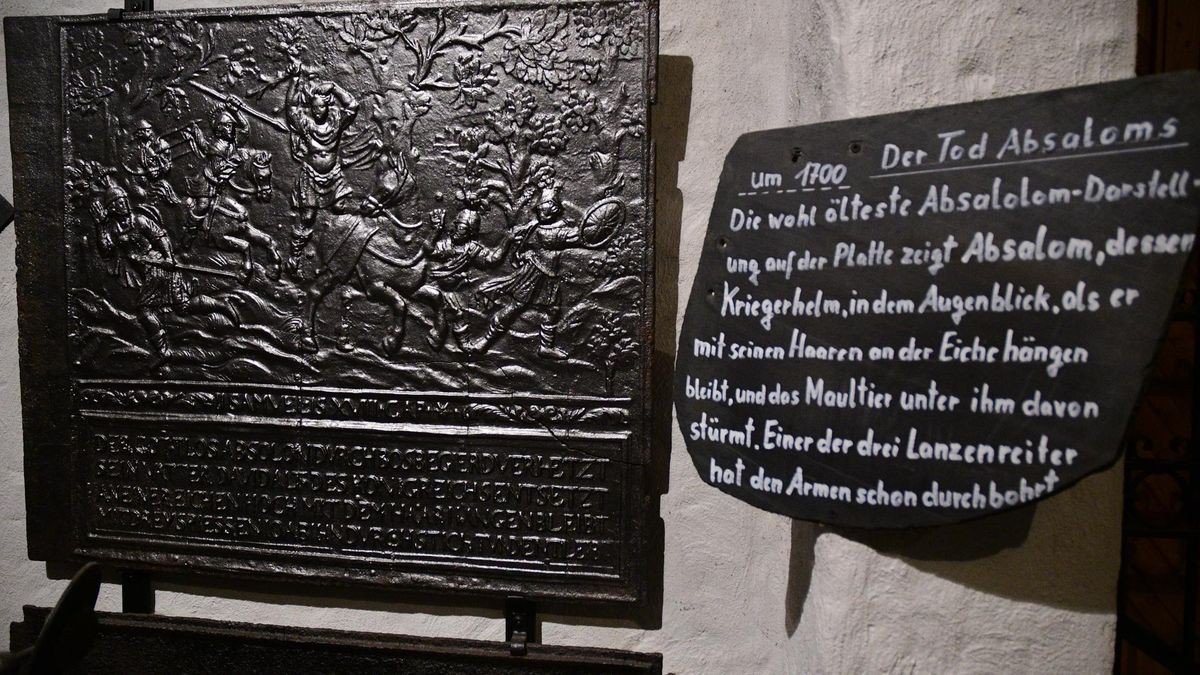 II SAMVELIS XVIII CAP
DER GOTLOS ABSOLON DVRCH BOS BEGERD VERHETZT
SEIN VATTER DAVID AVF DES KONIGREICHS ENTSETZT
AN EINER EICHEN HOCH MIT DEM HAAR HANGEN BLEIBT
MIT DREY SPIESSEN IOAB
um 1700 Der Tod Absaloms
Die wohl älteste Absalolom-Darstell-
ung auf der Platte zeigt Absalom, dessen
Kriegerhelm, in dem Augenblick, als er
mit seinen Haaren an der Eiche hängen
bleibt, und das Maultier unter ihm davon
stürmt. Einer der drei Lanzenreiter
hat den Armen schon durchbohrt